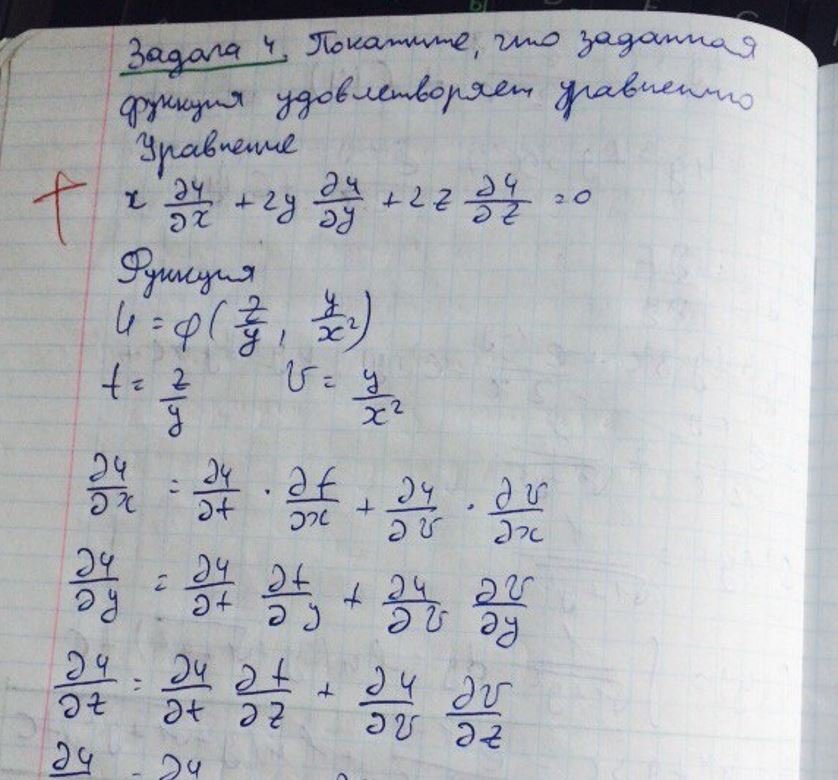 Задача 4. Покажите, что заданная
функция удовлетворяет уравнению
Уравнение
x ∂u/∂x + 2y ∂u/∂y + 2z ∂u/∂z = 0
Функция
u = φ(z/y, y/x²)
t = z/y v = y/x²
∂u/∂x = ∂u/∂t · ∂t/∂x + ∂u/∂v · ∂v/∂x
∂u/∂y = ∂u/∂t ∂t/∂y + ∂u/∂v ∂v/∂y
∂u/∂z = ∂u/∂t ∂t/∂z + ∂u/∂v ∂v/∂z